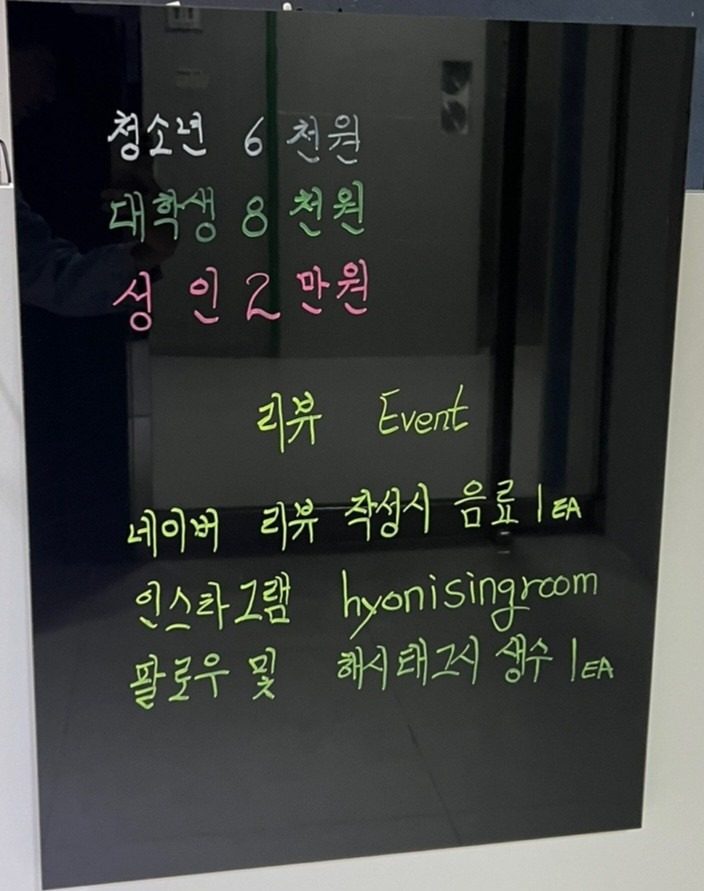 청소년 6 천원
대학생 8 천원
성인 2 만원
리뷰 Event
네이버 리뷰 작성시 음료 1 EA
인스타그램 hyonisingroom
팔로우 및 해시태그시 생수 1 EA